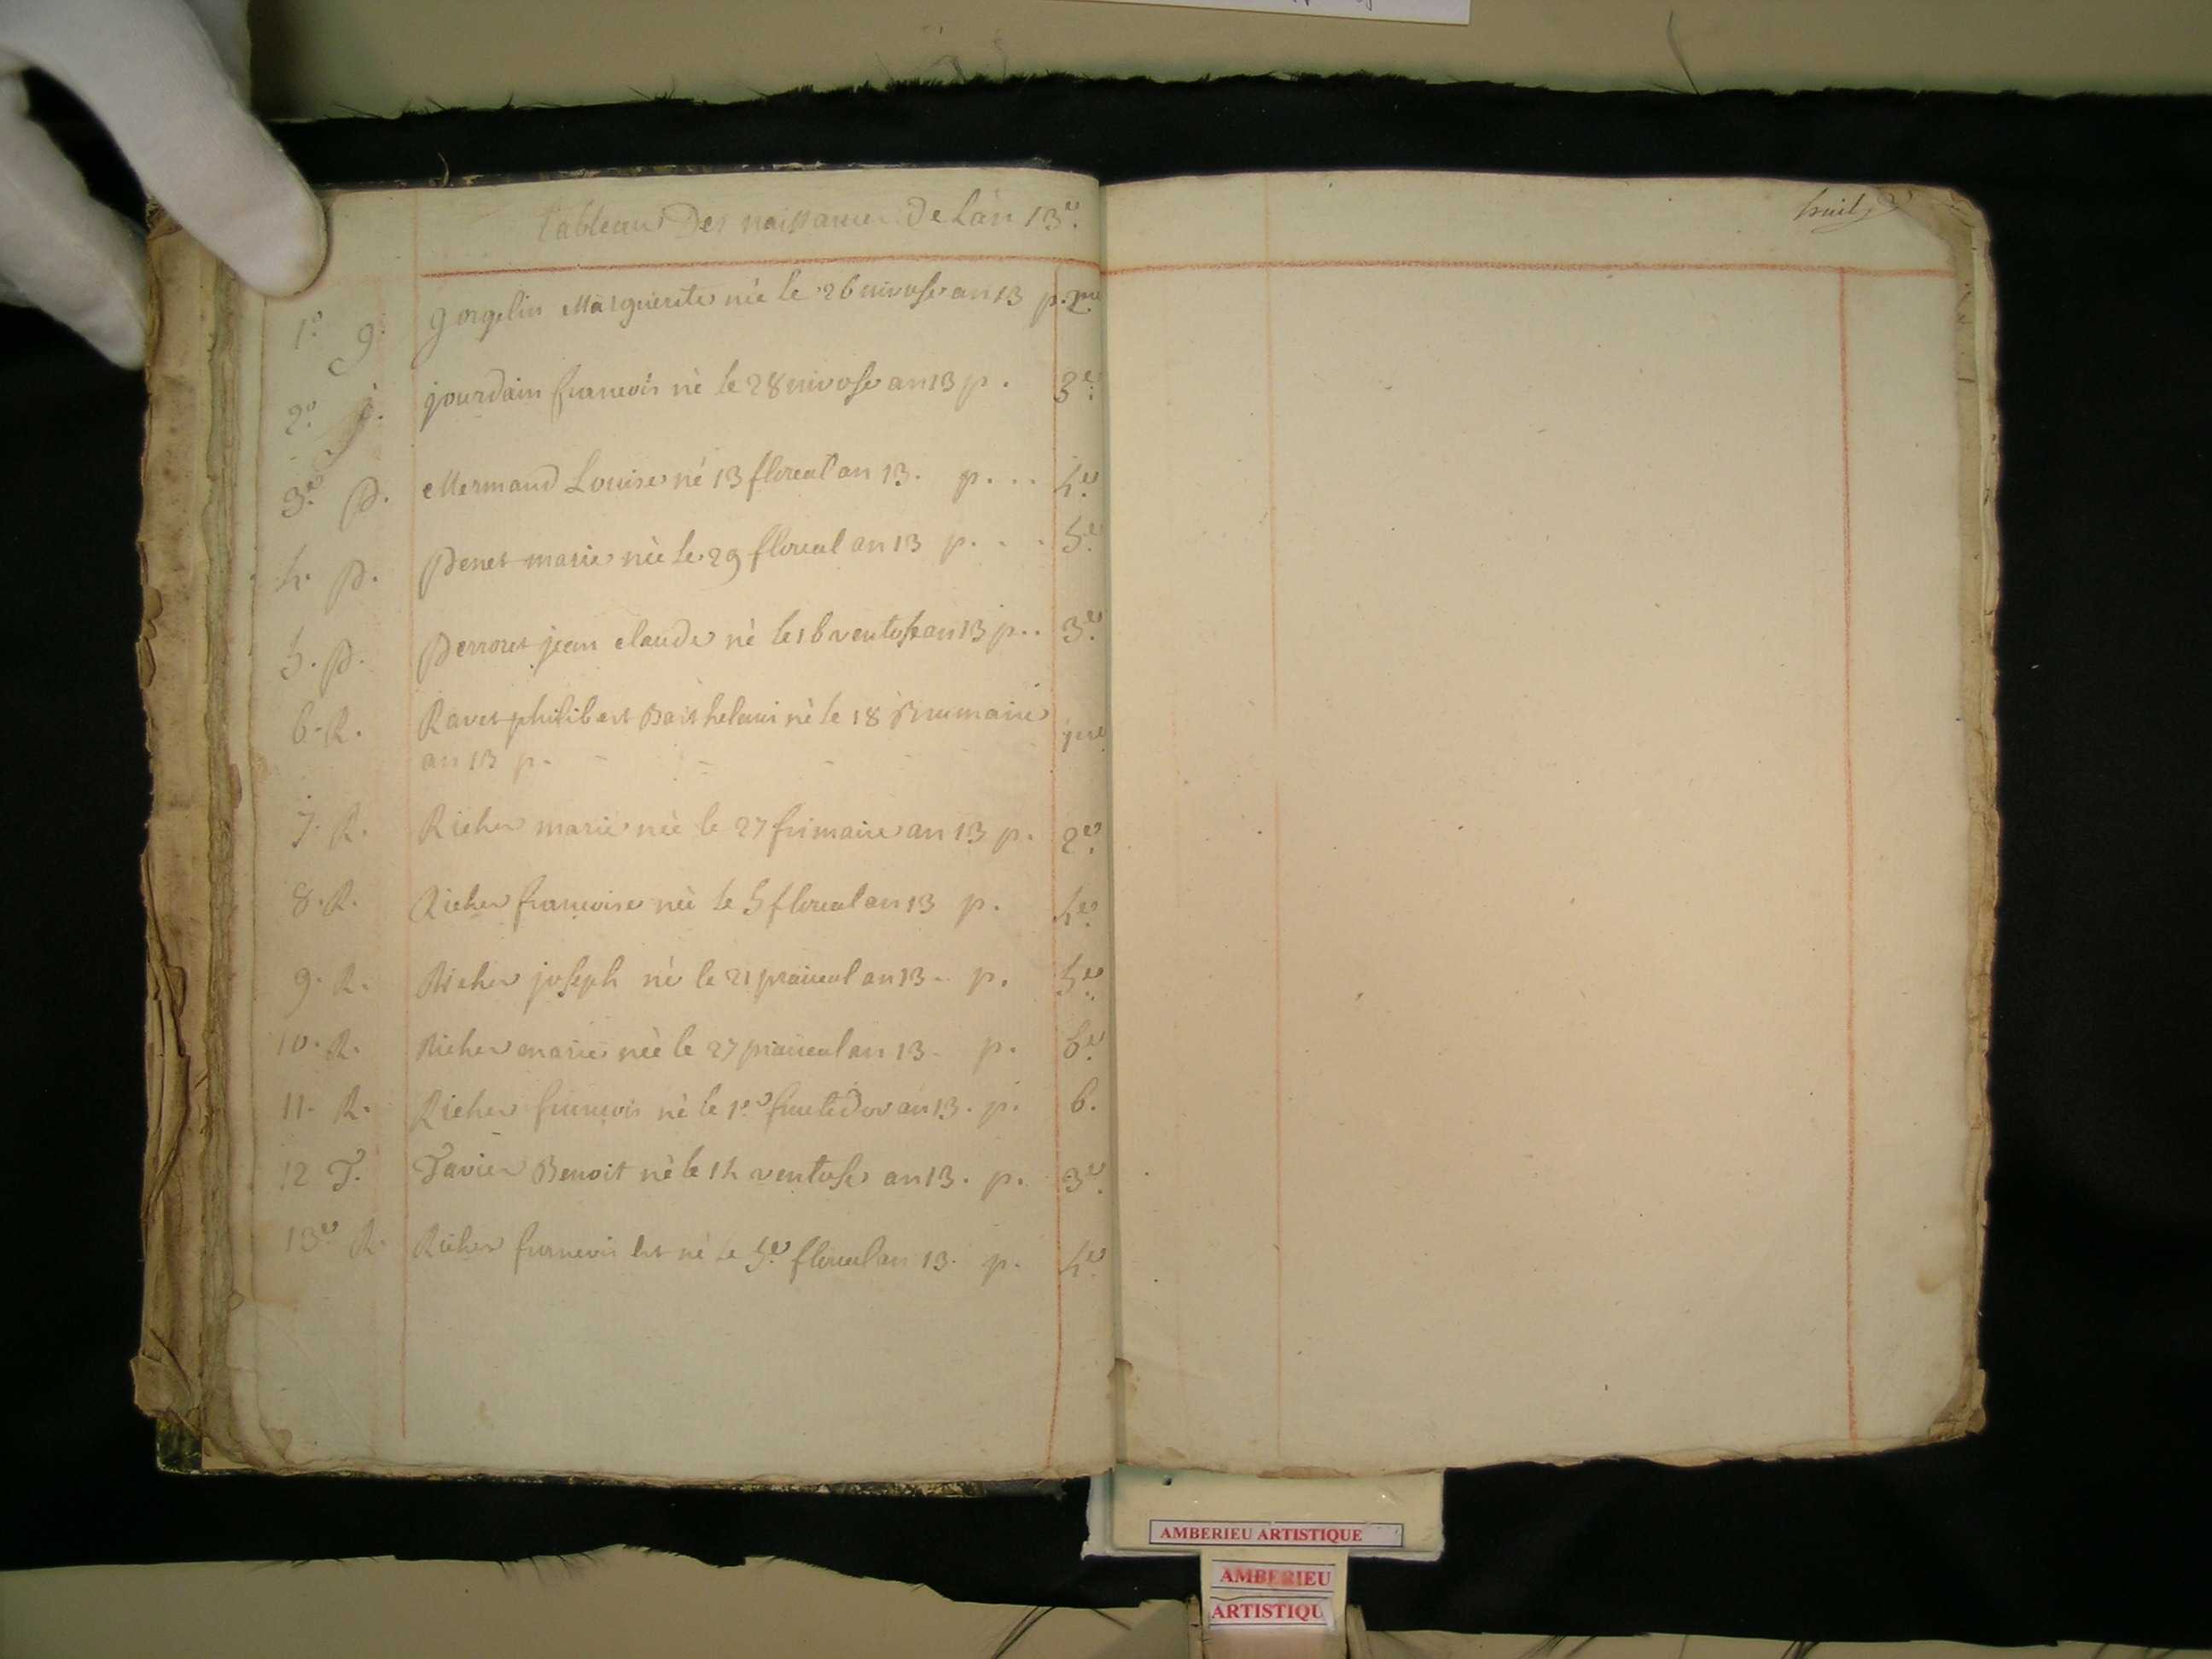 tableau Des naissances De Lan 13e.
1o g. gorgelin Marguerite née le 26 nivose an 13 p. 2me
2o j. jourdain francois né le 28 nivose an 13 p. 3e.
3e p. Mermand Louise né 13 floreal an 13. p... 4e.
4. p. Penet marie née le 29 floreal an 13 p. . . 5e.
5. p. Perroret jean claude né le 16 ventose an 13 p.. 3e.
6. R. Ravet philibert Barthelemi né le 18 Brumaire
an 13 p. - - - - pre
7. R. Richer marie née le 27 frimaire an 13 p. 2e.
8. R. Richer francoise née le 5 floreal an 13 p. 4e.
9. R. Richer joseph né le 21 prairial an 13 - p. 5e.
10. R. Richer marie née le 27 prairial an 13 - p. 6e.
11. R. Richer francois né le 1er fructidor an 13. p. 6.
12 T. Tavier Benoit né le 14 ventose an 13. p. 3e.
13e R. Richer francois né le 5e. floreal an 13. p. 4e.
huit
AMBERIEU ARTISTIQUE
AMBERIEU
ARTISTIQU